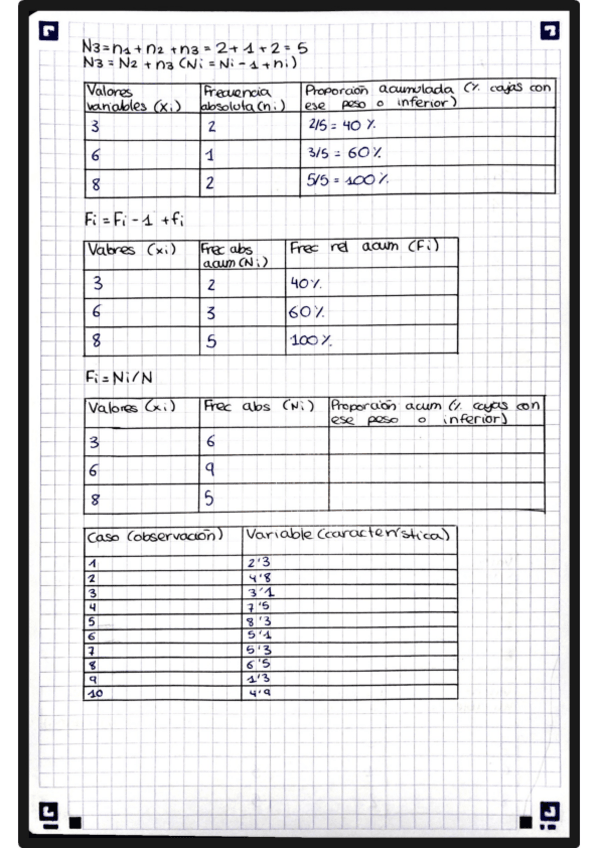 N3=n1+n2+n3=2+1+2=5
N3=N2+n3 (Ni=Ni-1+ni)
Valores variables (xi) Frecuencia absoluta (ni) Proporción acumulada (% cajas con ese peso o inferior)
3 2 2/5 = 40%
6 1 3/5 = 60%
8 2 5/5 = 100%
Fi=Fi-1+fi
Valores (xi) Frec abs acum (Ni) Frec rel acum (Fi)
3 2 40%
6 3 60%
8 5 100%
Fi=Ni/N
Valores (xi) Frec abs (Ni) Proporción acum (% cajas con ese peso o inferior)
3 6
6 9
8 5
Caso (observación) Variable (característica)
1 2'3
2 4'8
3 3'1
4 7'5
5 8'3
6 5'1
7 5'3
8 6'5
9 1'3
10 4'9